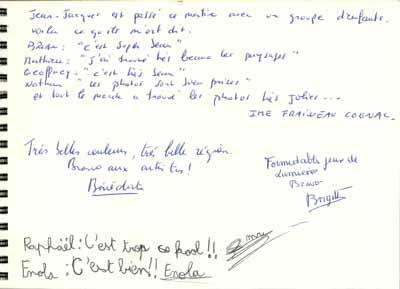 Jean-Jacques est passé ce matin avec un groupe d'enfants.
voilà ce qu'ils m'ont dit.
Brian : "c'est super beau"
Mathieu : "j'ai trouvé très beaux les paysages"
Geoffrey : "c'est très beau"
Nathan " les photos sont bien prises"
et tout le monde a trouvé les photos très jolies...
IME FRAINEAU COGNAC.
Très belles couleurs, très belle région.
Bravo aux artistes !
Bénédicte
Formidable jeux de
lumière
Bravo
Brigitte
Raphaël : C'est trop cool !!
Enola : C'est bien !! Enola